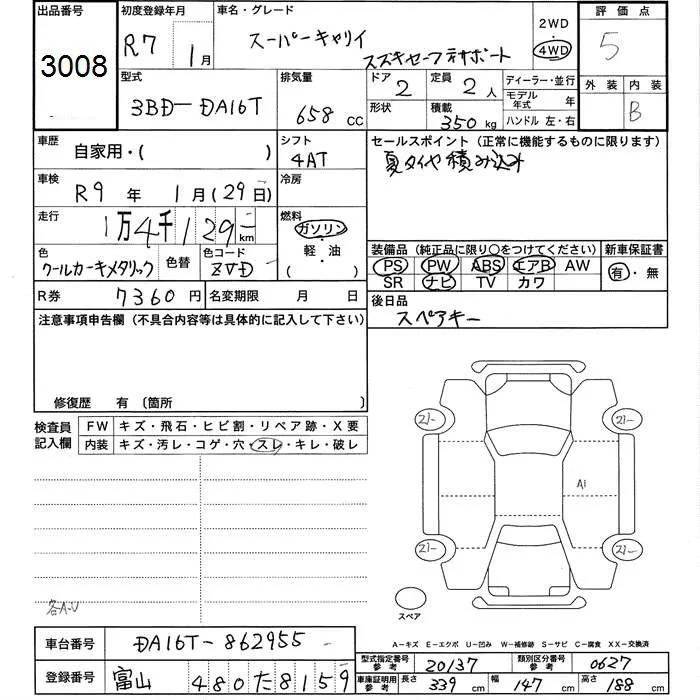 出品番号
3008
初度登録年月
R7 1月
車名・グレード
スーパーキャリイ
スズキセーフティサポート
2WD
4WD
評価点
5
外装 内装
B
型式
3BD-DA16T
排気量
658 CC
ドア
2
形状
定員
2人
積載
350 kg
ディーラー・並行
モデル年式 年
ハンドル 左・右
車歴
自家用・( )
シフト
4AT
車検
R9年 1月(29日)
冷房
走行
1万4千129 km
燃料
ガソリン・
軽・油
( )
色
クールカーキメタリック
色替
色コード
ZVD
R券 7360円
名変期限 月 日
セールスポイント(正常に機能するものに限ります)
夏タイヤ積み込み
装備品(純正品に限り○をつけてください)
PS PW ABS エアB AW
SR ナビ TV カワ
新車保証書
有・無
後日品
スペアキー
注意事項申告欄(不具合内容等は具体的に記入して下さい)
修復歴 有〔箇所 〕
検査員記入欄
FW キズ・飛石・ヒビ割・リペア跡・X要
内装 キズ・汚レ・コゲ・穴・スレ・キレ・破レ
各A-U
21-
21-
A1
21-
21-
スペア
A-キズ E-エクボ U-凹み W-補修跡 S-サビ C-腐食 XX-交換済
車台番号 DA16T-862955
登録番号 富山 480た8159
型式指定番号参考 20137
類別区分番号参考 0627
車庫証明用参考
長さ 339 cm
幅 147 cm
高さ 188 cm